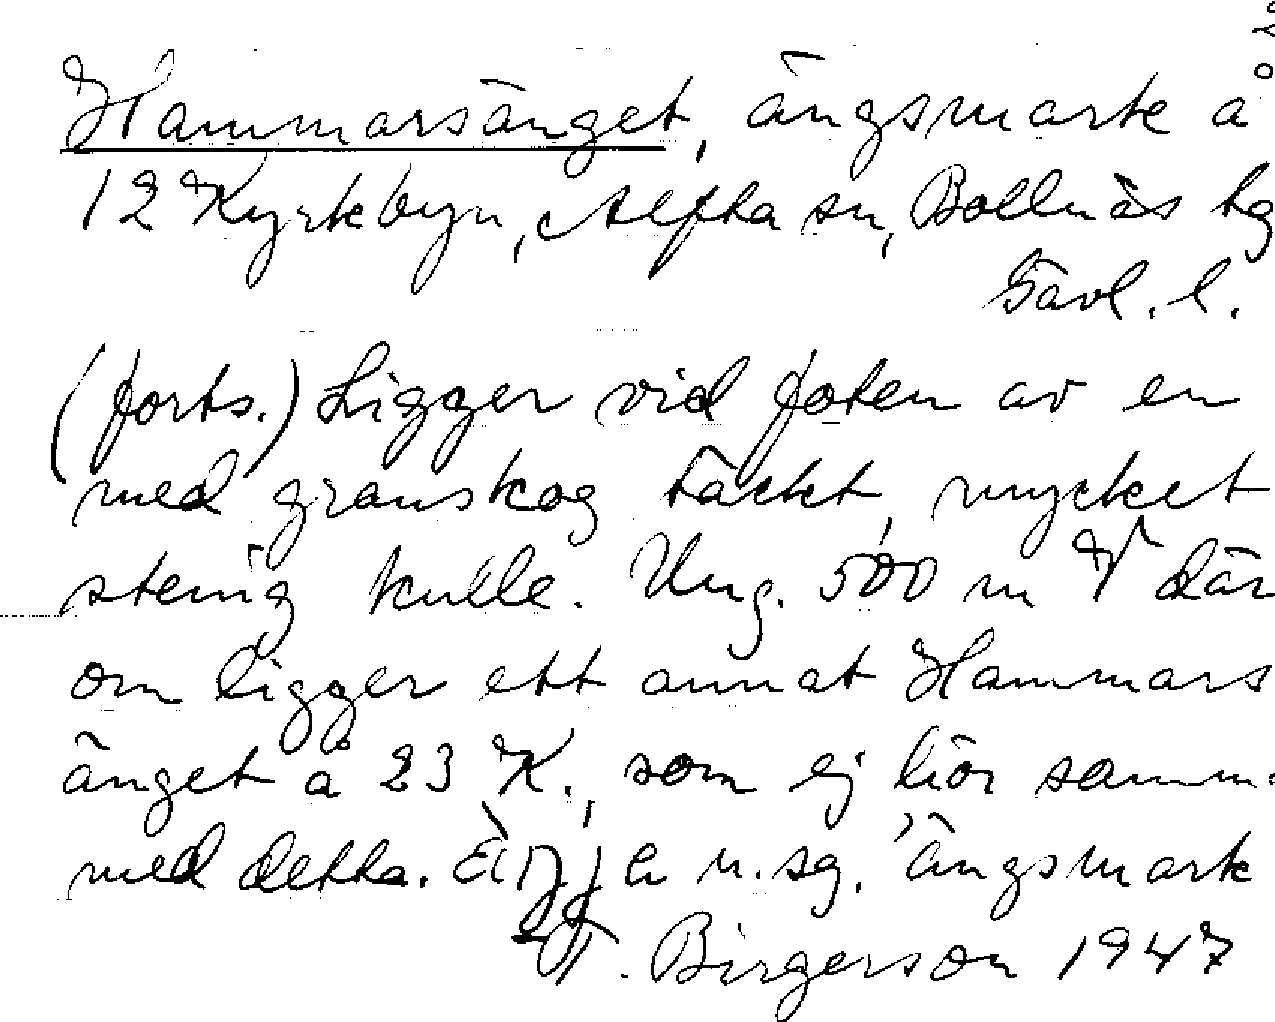 Hammarsänget, ängsmark å
12 Kyrkbyn, Alfta sn, Bollnäs tg
Gävl. l.
(forts.) Ligger vid foten av en
med granskog täckt, mycket
stenig kulle. Ung. 500 m V där
om ligger ett annat Hammars
änget å 23 K., som ej hör samm.
med detta. Äŋja n. sg. 'ängsmark
T. Birgerson 1947